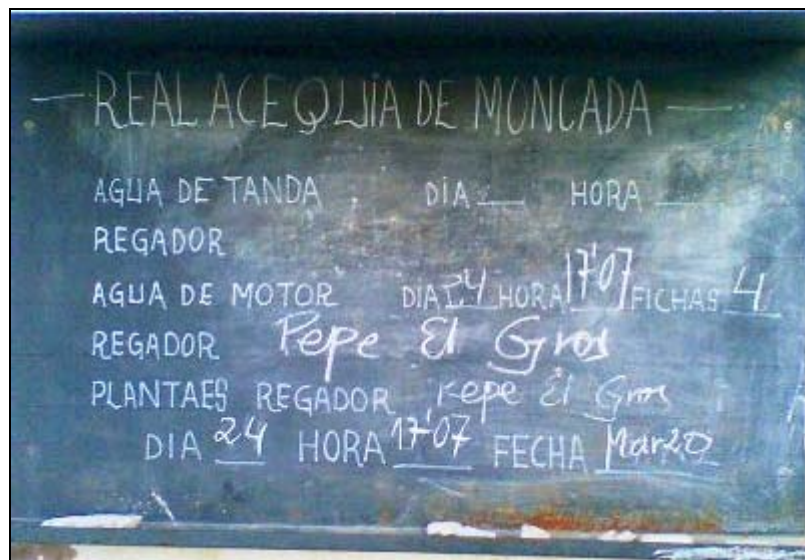 — REAL ACEQUIA DE MONCADA —
AGUA DE TANDA DIA __ HORA __
REGADOR
AGUA DE MOTOR DIA 24 HORA 17'07 FICHAS 4
REGADOR Pepe El Gros
PLANTAES REGADOR Pepe El Gros
DIA 24 HORA 17'07 FECHA Marzo